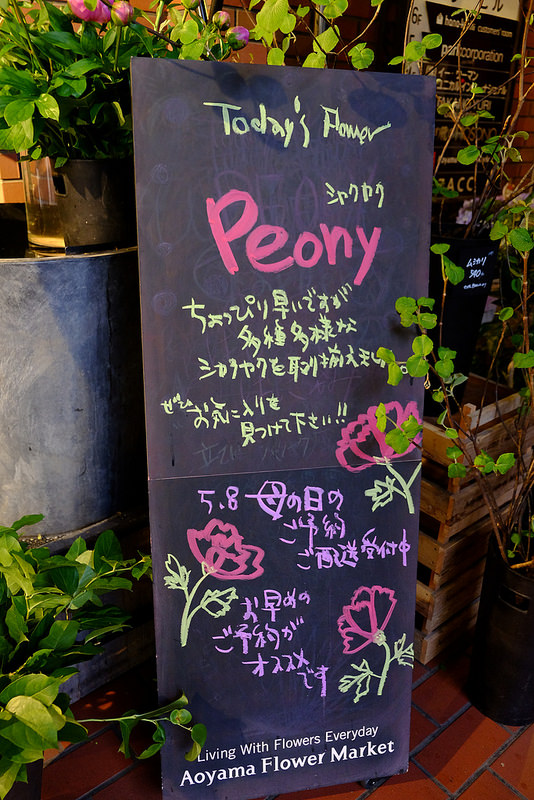 Today's Flower
シャクヤク
Peony
ちょっぴり早いですが
多種多様な
シャクヤクを取り揃えまし
ぜひ お気に入りを
見つけて下さい!!
5.8 母の日の
ご予約
ご配送受付中
お早めの
ご予約が
オススメ
です
Living With Flowers Everyday
Aoyama Flower Market
corporation